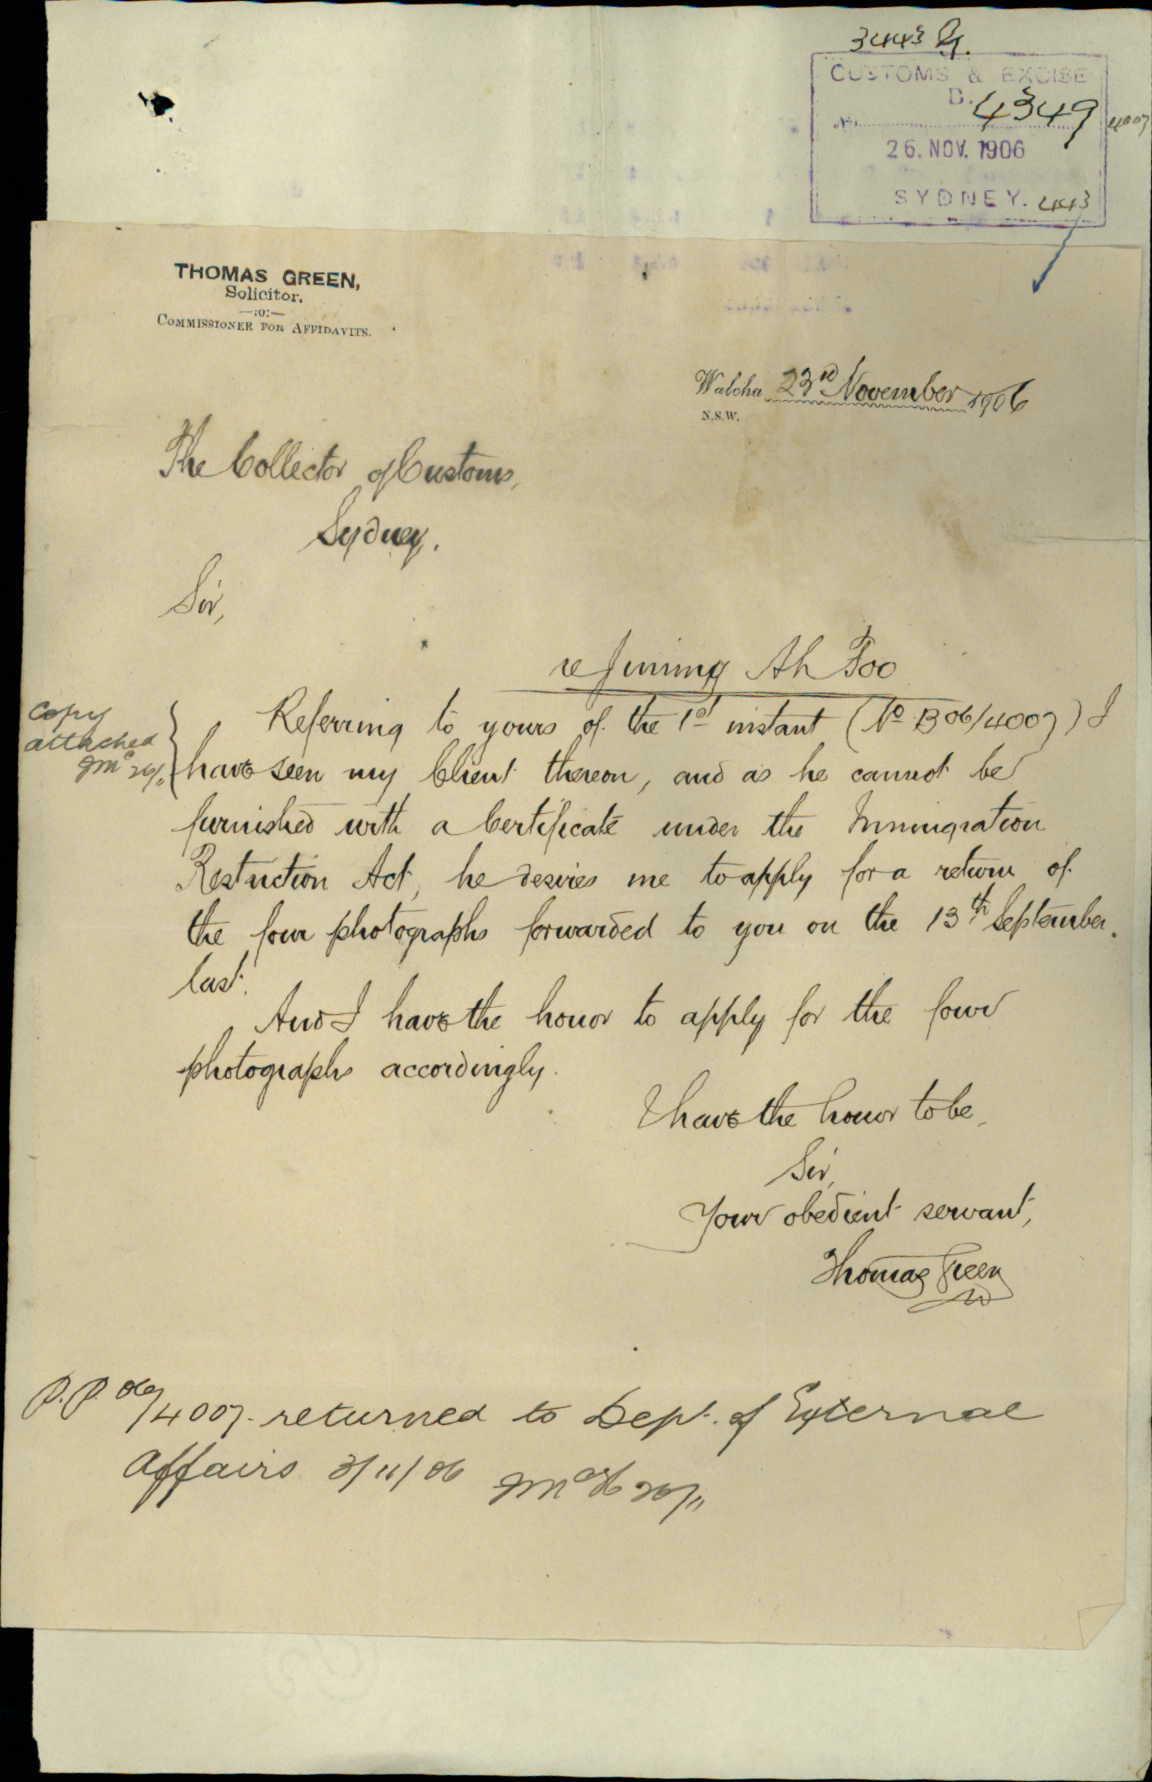 3443
CUSTOMS & EXCISE
B. 4349
No.
4007
26. NOV. 1906
SYDNEY. 443
THOMAS GREEN,
Solicitor.
—:o:—
COMMISSIONER FOR AFFIDAVITS.
Walcha 23rd November 1906
N.S.W.
The Collector of Customs,
Sydney.
Sir,
re Jimmy Ah Foo
Referring to yours of the 1st instant (No B06/4007) I
have seen my Client thereon, and as he cannot be
furnished with a Certificate under the Immigration
Restriction Act, he desires me to apply for a return of
the four photographs forwarded to you on the 13th September
last.
And I have the honor to apply for the four
photographs accordingly.
I have the honor to be,
Sir,
Your obedient servant,
Thomas Green
copy
attached
P.P 06/4007. returned to Dept. of External
Affairs 3/11/06